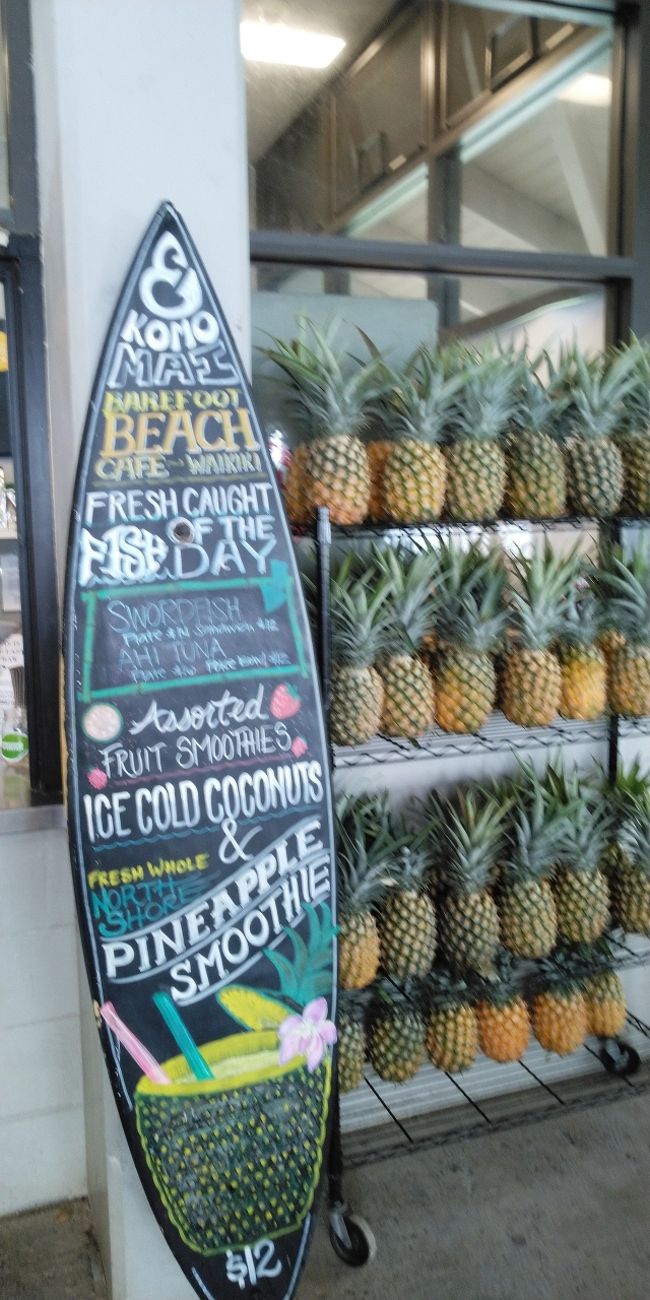 E KOMO
MAI
BAREFOOT
BEACH
CAFE ~ WAIKIKI
FRESH CAUGHT
FISH OF THE
DAY
SWORDFISH
Plate $14 Sandwich $12
AHI TUNA
Plate $16 Poke Bowl $12
Assorted
FRUIT SMOOTHIES
ICE COLD COCONUTS
&
FRESH WHOLE
NORTH
SHORE
PINEAPPLE
SMOOTHIE
$12